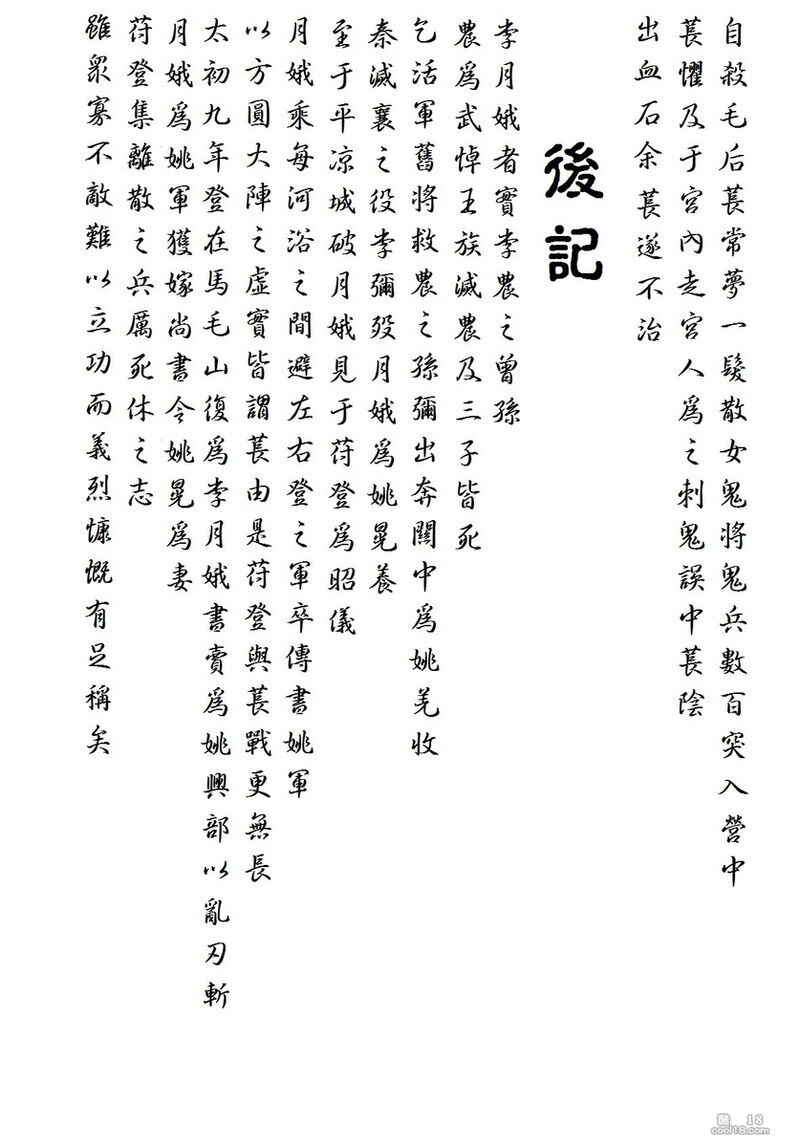 自殺毛后萇常夢一髮散女鬼將鬼兵數百突入營中
萇懼及于宮內走宮人爲之刺鬼誤中萇陰
出血石余萇遂不治
後記
李月娥者實李農之曾孫
農爲武悼王族滅農及三子皆死
乞活軍舊將救農之孫彌出奔關中爲姚羌收
秦滅襄之役李彌歿月娥爲姚晃養
至于平凉城破月娥見于苻登爲昭儀
月娥乘每河浴之間避左右登之軍卒傳書姚軍
以方圓大陣之虛實皆謂萇由是苻登與萇戰更無長
太初九年登在馬毛山復爲李月娥書賣爲姚興部以亂刃斬
月娥爲姚軍獲嫁尚書令姚晃爲妻
苻登集離散之兵厲死休之志
雖眾寡不敵難以立功而義烈慷慨有足稱矣
酷18
cool18.com